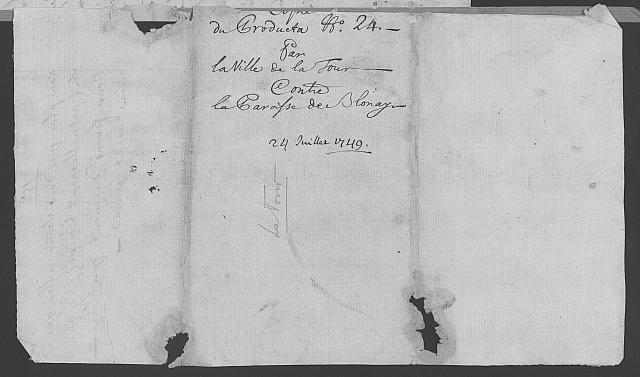 Copie
du Producta No. 24.
Par
la Ville de la Tour
Contre
la Paroisse de Blonay
24 Juillet 1749.
La Tour